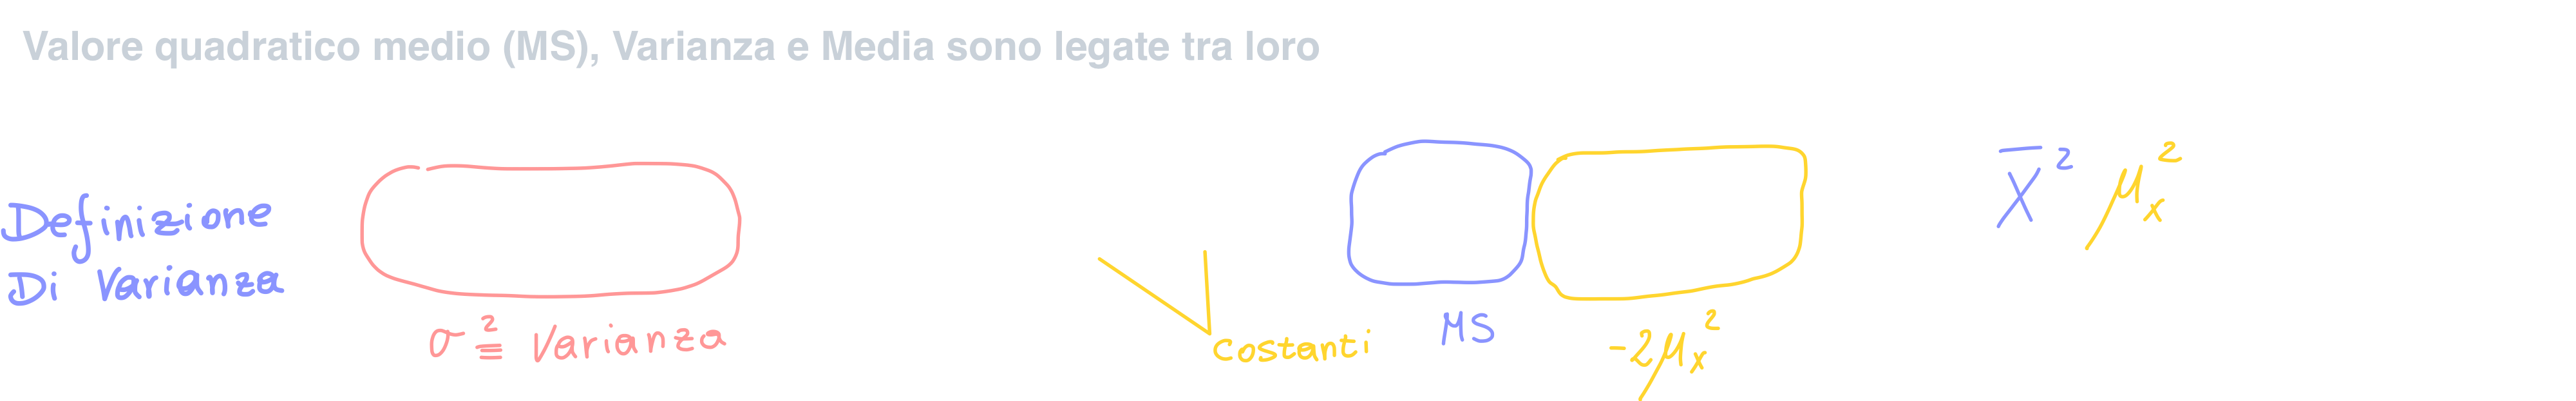 Valore quadratico medio (MS), Varianza e Media sono legate tra loro
Definizione
Di Varianza
σ² ≡ Varianza
costanti
MS
-2μₓ²
X̅² μₓ²